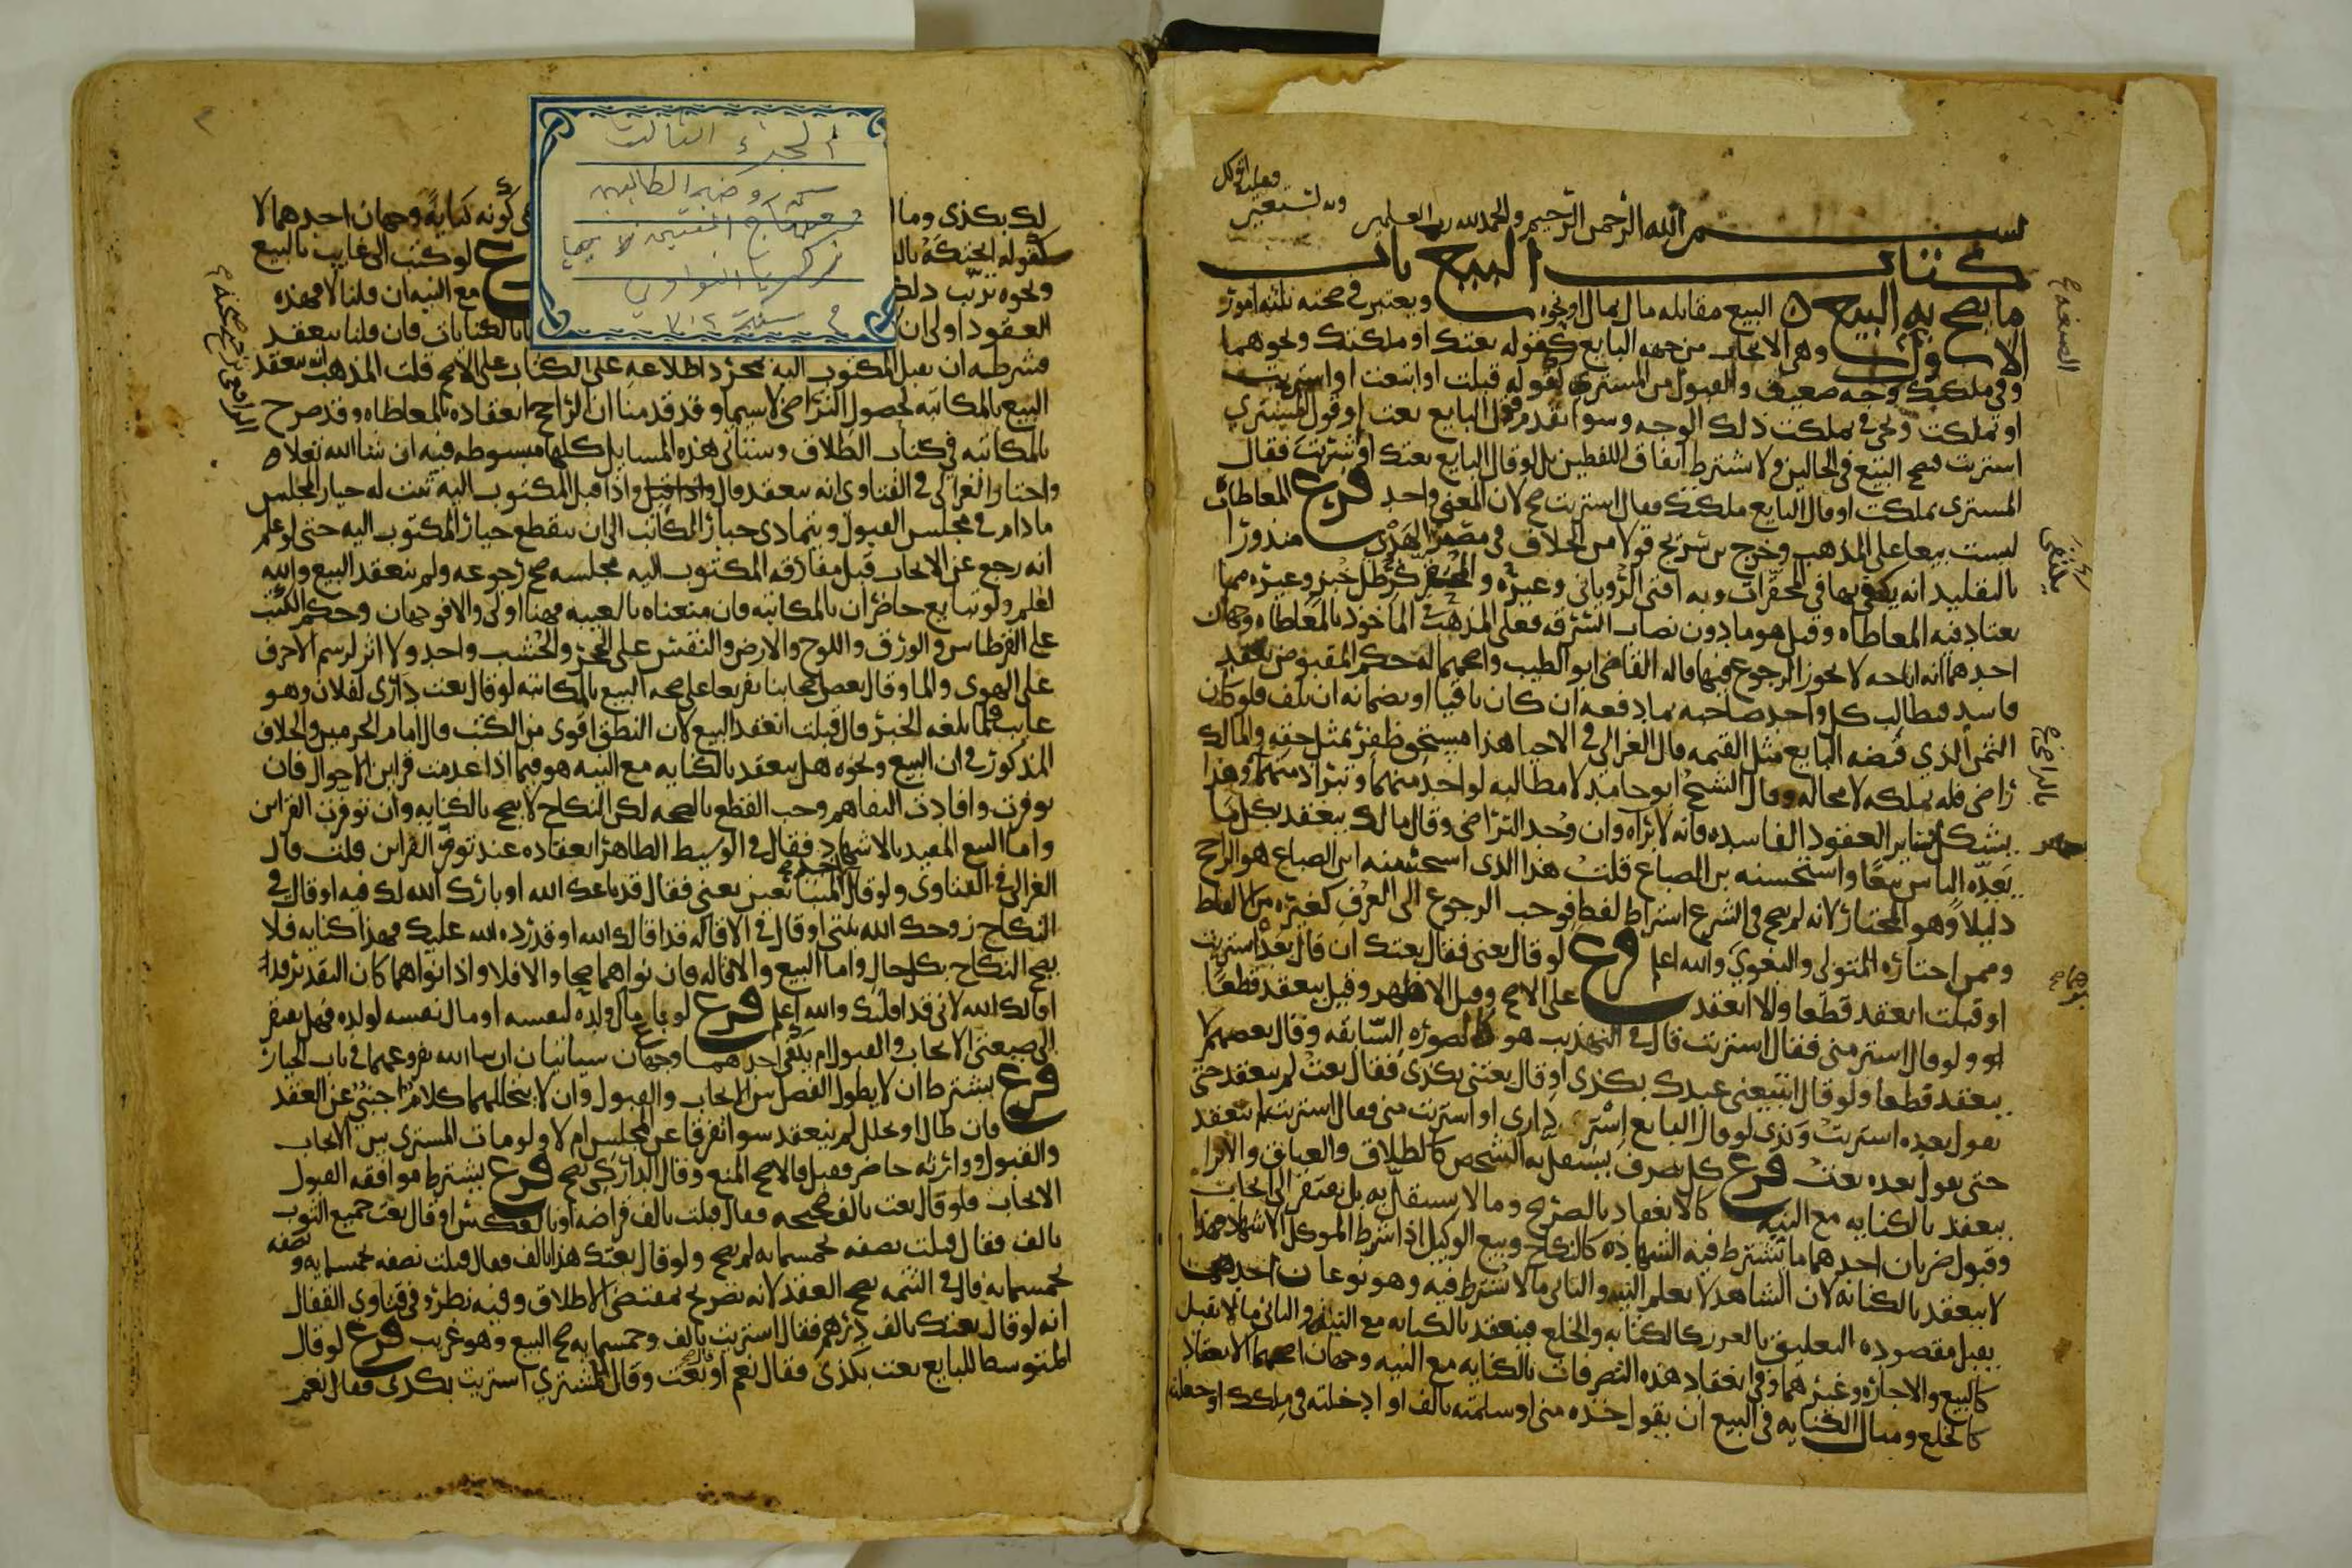 وبه نستعين وعليه اتوكل
بسم الله الرحمن الرحيم والحمد لله رب العلمين
كتاب البيع باب
ما يصح به البيع البيع مقابله مال بمال او نحوه ويعتبر في صحته ثلثه امور
الاول وهي الايجاب من جهه البايع كقوله بعتك او ملكتك ونحوهما
وفي ملكتك وجه ضعيف والقبول من المشتري كقوله قبلت او ابتعت او اشتريت
او تملكت ويجي في تملكت ذلك الوجه وسوا تقدم قول البايع بعت او قول المشتري
اشتريت فيصح البيع في الحالين ولا يشترط اتفاق اللفظين بل لو قال البايع بعتك او شريت فقال
المشتري تملكت او قال البايع ملكتك فقال اشتريت صح لان المعنى واحد فرع المعاطاة
ليست بيعا على المذهب وخرج بن شريح قولا من الخلاف في مصير الهدي منذورا
بالتقليد انه يكتفى بها في المحقرات وبه افتى الروياني وغيره والمحقر كرطل خبز وغيره مما
يعتاد فيه المعاطاه وقيل هو ما دون نصاب السرقه فعلى المذهب في الماخوذ بالمعاطاه وجهان
احدهما انه اباحه لا يجوز الرجوع فيها قاله القاضي ابو الطيب واصحهما له حكم المقبوض بعقد
فاسد فيطالب كل واحد صاحبه بما دفعه ان كان باقيا او بضمانه ان تلف فلو كان
الثمن الذي قبضه البايع مثل القيمه قال الغزالي في الاحيا هذا مستحق ظفر بمثل حقه والمالك
راضي فله تملكه لا محاله وقال الشيخ ابو حامد لا مطالبه لواحد منهما وتبرا ذمتهما وهذا
يشكل بساير العقود الفاسده فانه لا براه وان وجد التراضي وقال مالك ينعقد بكل ما
يعده الناس بيعا واستحسنه بن الصباغ قلت هذا الذي استحسنه ابن الصباغ هو الراجح
دليلا وهو المختار لانه لم يصح في الشرع اشتراط لفظ فوجب الرجوع الى العرف كغيره من الالفاظ
وممن اختاره المتولي والبغوي والله اعلم فرع لو قال بعني فقال بعتك ان قال بعده اشتريت
او قبلت انعقد قطعا والا انعقد على الاصح وقيل الاظهر وقيل ينعقد قطعا
ولو قال اشتر مني فقال اشتريت قال في التهذيب هو كالصوره السابقه وقال بعضهم لا
ينعقد قطعا ولو قال اتبيعني عبدك بكذى او قال بعتني بكذى فقال بعت لم ينعقد حتى
يقول بعده اشتريت وكذى لو قال البايع اتشتري داري او اشتريت مني فقال اشتريت لم ينعقد
حتى يقول بعده بعت فرع كل تصرف يستقل به الشخص كالطلاق والعتاق والابرا
ينعقد بالكنايه مع النيه كالانعقاد بالصريح وما لا يستقل به بل يفتقر الى ايجاب
وقبول ضربان احدهما ما يشترط فيه الشهاده كالنكاح وبيع الوكيل اذا شرط الموكل الاشهاد فهذا
لا ينعقد بالكنايه لان الشاهد لا يعلم النيه والثاني ما لا يشترط فيه وهو نوعان احدهما
يقبل مقصوده التعليق بالغرر كالكتابه والخلع فينعقد بالكنايه مع النيه والثاني ما لا يقبل
كالبيع والاجاره وغيرهما وفي انعقاد هذه التصرفات بالكنايه مع النيه وجهان اصحهما الانعقاد
كالخلع ومثال الكنايه في البيع ان يقول خذه مني او سلمته بالف او ادخلته في ملكك او جعلته
يكتفى
الجزء الثالث
من روضة الطالبين
ومنهاج المفتيين لابي يحيا
زكريا النواوي
لك بكذى وما
في كونه كنايه وجهان احدهما لا
كقوله ابحتكه بالف
لو كتب الى غايب بالبيع
ونحوه ترتب ذلك
مع النيه ان قلنا لا فهذه
العقود اولى ان
بالكنايات فان قلنا ينعقد
فشرطه ان يقبل المكتوب اليه بمجرد اطلاعه على الكتاب على الاصح قلت المذهب انه ينعقد
البيع بالمكاتبه لحصول التراضي لا سيما وقد قدمنا ان الراجح انعقاده بالمعاطاه وقد صرح
بالمكاتبه في كتاب الطلاق وسناتي هذه المسايل كلها مبسوطه فيه ان شا الله تعلى
واختار الغزالي في الفتاوي انه ينعقد قال واذا قبل المكتوب اليه ثبت له خيار المجلس
ما دام في مجلس القبول ويتمادى خيار الكاتب الى ان ينقطع خيار المكتوب اليه حتى لو علم
انه رجع عن الايجاب قبل مفارقه المكتوب اليه مجلسه صح رجوعه ولم ينعقد البيع والله
اعلم ولو تبايع حاضران بالمكاتبه فان منعناه بالغيبه فهنا اولى والا فوجهان وحكم الكتب
على القرطاس والورق واللوح والارض والنقش على الحجر والخشب واحد ولا اثر لرسم الاحرف
على الهوى والما وقال بعض اصحابنا تفريعا على صحه البيع بالمكاتبه لو قال بعت داري لفلان وهو
غايب فلما بلغه الخبر قال قبلت انعقد البيع لان النطق اقوى من الكتب قال امام الحرمين والخلاف
المذكور في ان البيع ونحوه هل ينعقد بالكنايه مع النيه هو فيما اذا عدمت قراين الاحوال فان
توفرت وافادت التفاهم وجب القطع بالصحه لكن النكاح لا يصح بالكنايه وان توفرت القراين
واما البيع المقيد بالاشهاد فقال في الوسيط الظاهر انعقاده عند توفر القراين قلت قال
الغزالي في الفتاوى ولو قال احد المتبايعين بعني فقال قد باعك الله او بارك الله لك فيه او قال في
النكاح زوجك الله بنتي او قال في الاقاله قد اقالك الله او قد رده الله عليك فهذا كنايه فلا
يصح النكاح بكل حال واما البيع والاقاله فان نواهما صحا والا فلا واذا نواهما كان التقدير قد
اقالك الله لاني قد اقلتك والله اعلم فرع لو باع مال ولده لنفسه او مال نفسه لولده فهل يفتقر
الى صيغتي الايجاب والقبول ام يكفي احدهما وجهان سياتيان ان شا الله بفروعهما في باب الخيار
فرع يشترط ان لا يطول الفصل بين الايجاب والقبول وان لا يتخللهما كلام اجنبي عن العقد
فان طال او تخلل لم ينعقد سوا تفرقا عن المجلس ام لا ولو مات المشتري بين الايجاب
والقبول ووارثه حاضر فقبل فالاصح المنع وقال الداركي يصح فرع يشترط موافقه القبول
الايجاب فلو قال بعت بالف صحيحه فقال قبلت بالف قراضه او بالعكس او قال بعت جميع الثوب
بالف فقال قبلت نصفه بخمسمايه لم يصح ولو قال بعتك هذا بالف فقال قبلت نصفه بخمسمايه ونصفه
بخمسمايه قال في التتمه يصح العقد لانه تصريح بمقتضى الاطلاق وفيه نظر وفي فتاوي القفال
انه لو قال بعتك بالف درهم فقال اشتريت بالف وخمسمايه صح البيع وهو غريب فرع لو قال
المتوسط للبايع بعت بكذى فقال نعم او بعت وقال للمشتري اشتريت بكذى فقال نعم